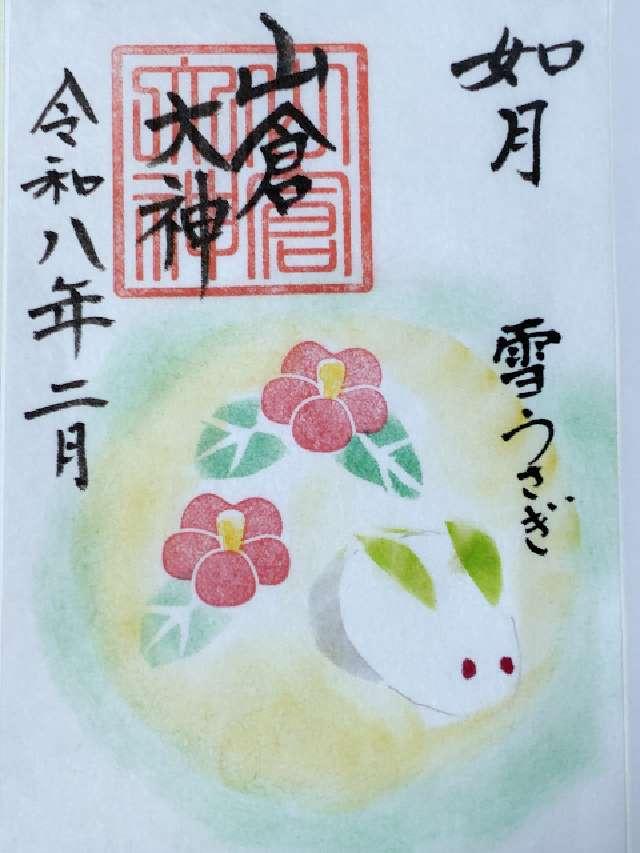 如月
雪うさぎ
山倉
大神
山倉
大神
令和八年二月